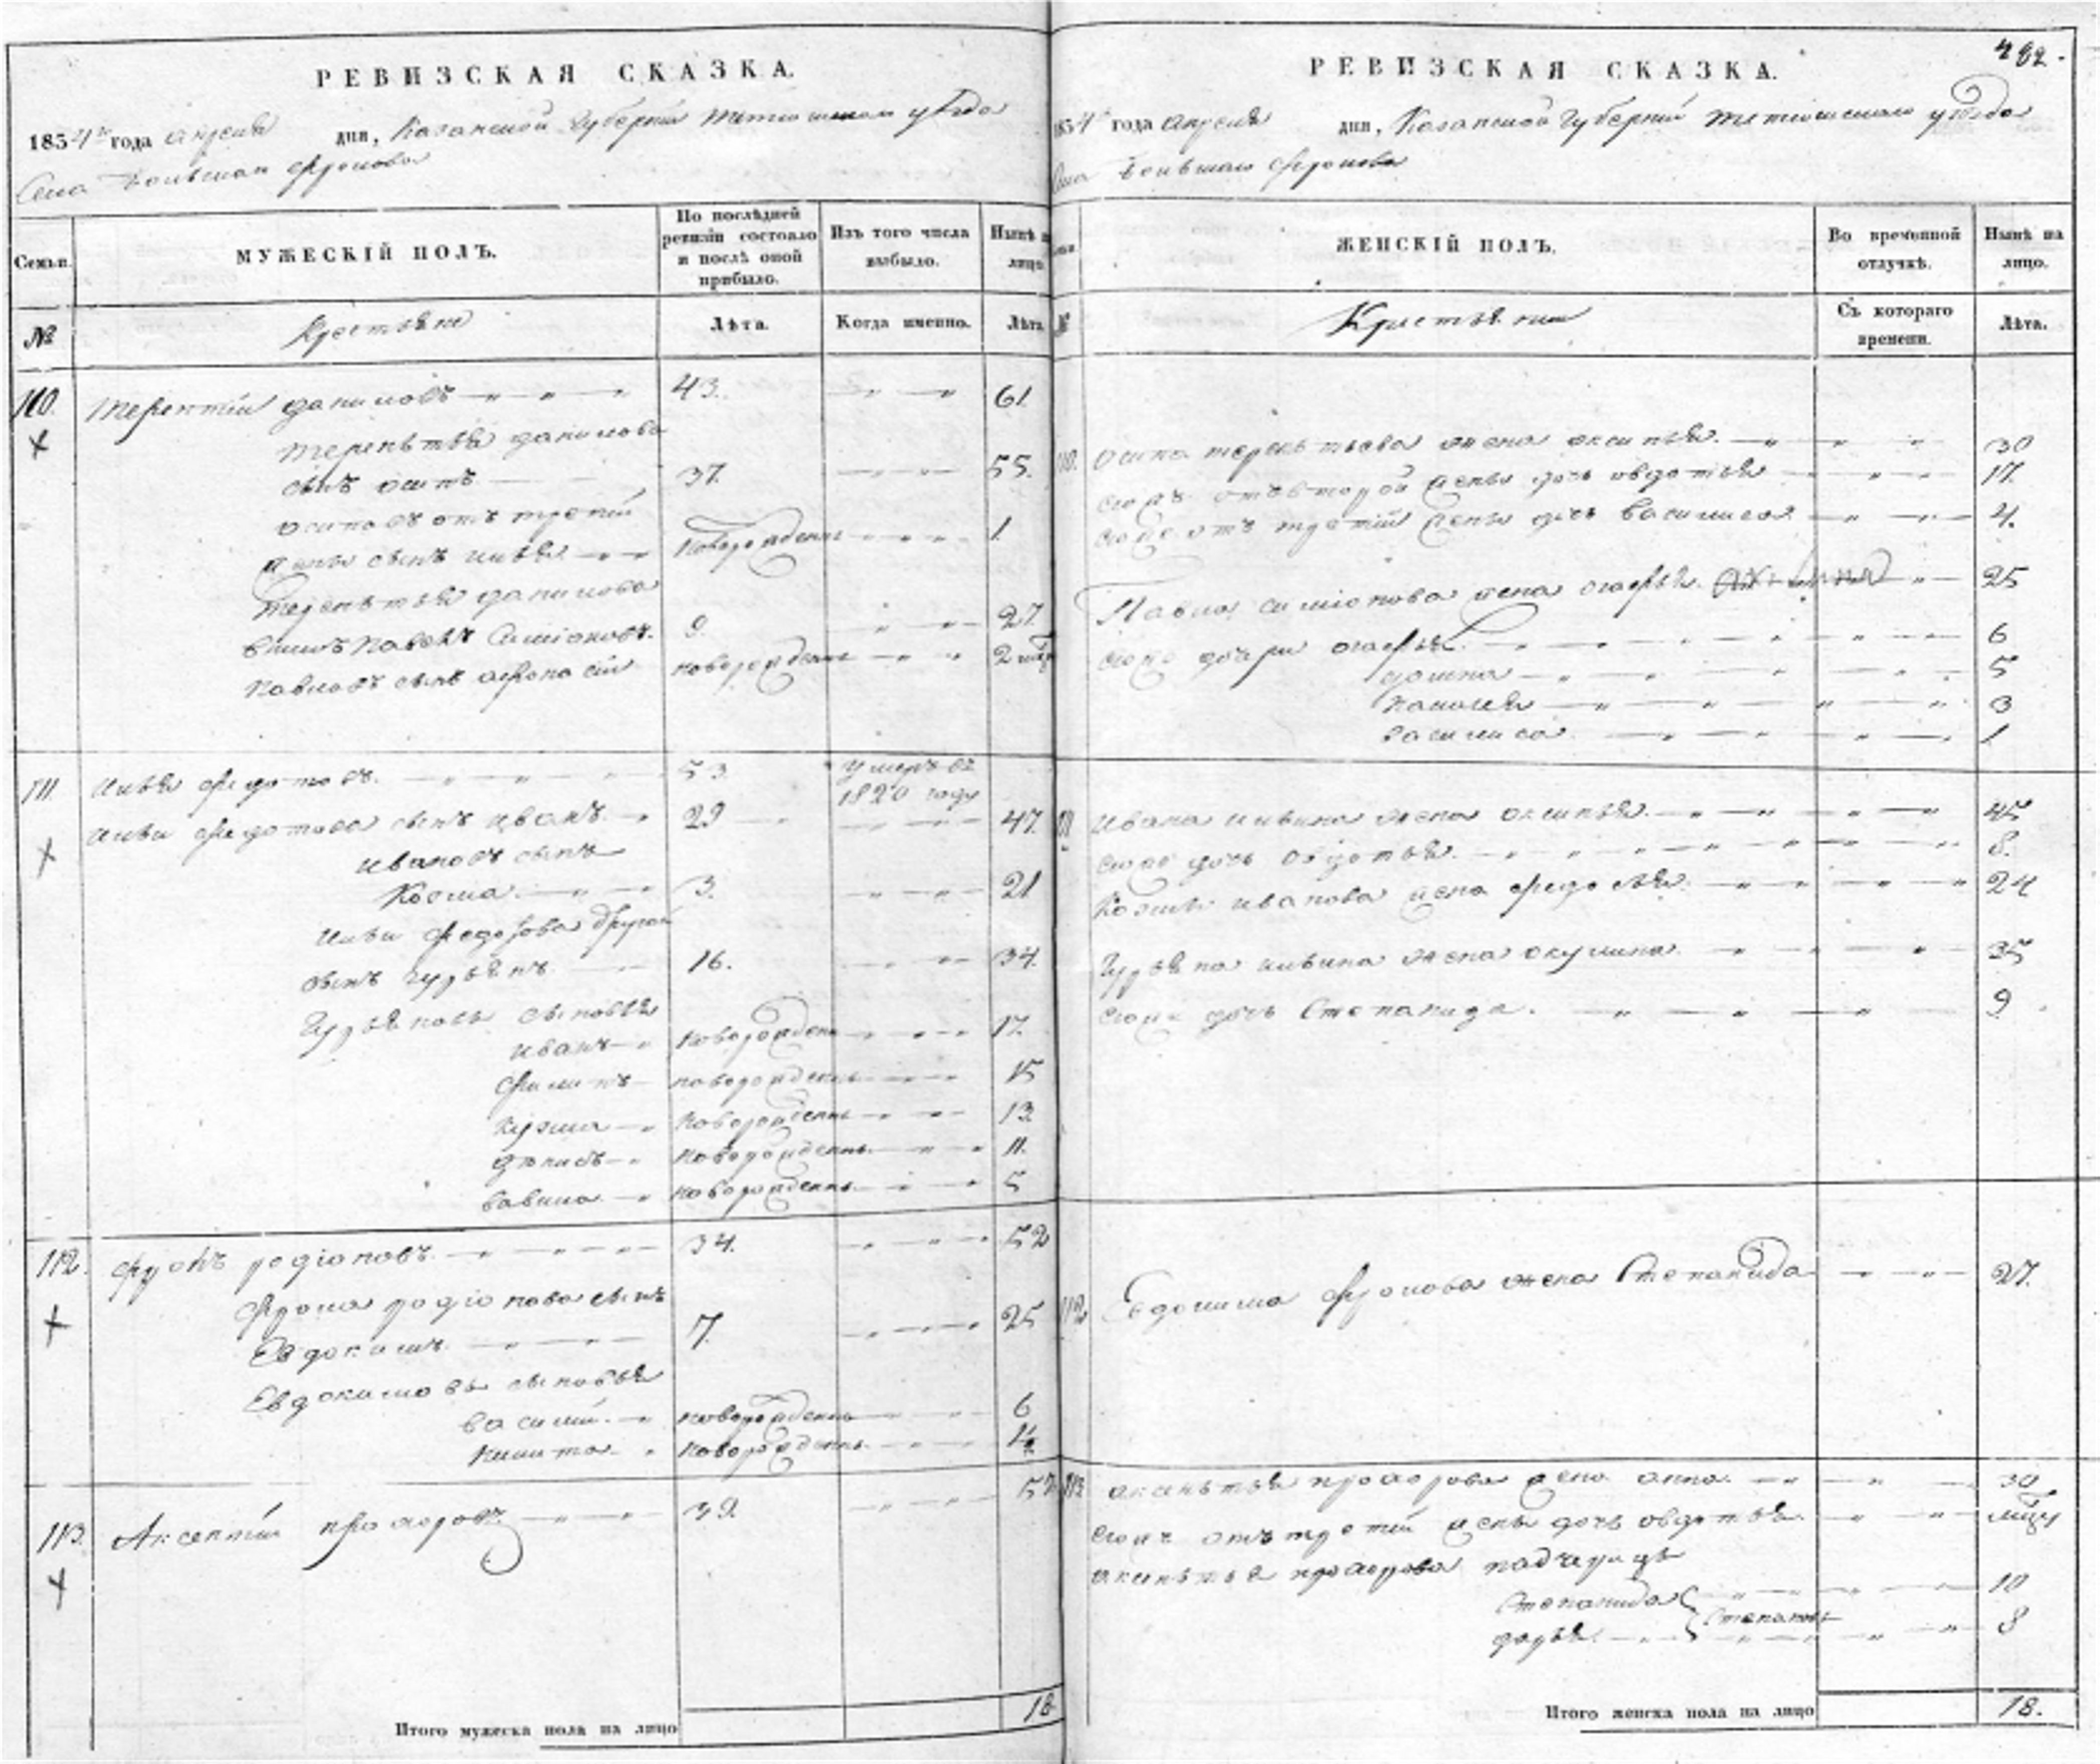 РЕВИЗСКАЯ СКАЗКА.
1854го года апреля дня, Казанской Губернiи Тетюшскаго уѣзда
Села Большаго Фролова
Семьи.
МУЖЕСКIЙ ПОЛЪ.
По послѣдней ревизiи состояло и послѣ оной прибыло.
Изъ того числа выбыло.
Нынѣ на лицо.
№
Крестьяне
Лѣта.
Когда именно.
Лѣта.
110. Терентiй даниловъ 43. 61.
Терентья данилова
сынъ осипъ 37. 55.
осиповъ отъ третiй
жены сынъ илья Новорожденъ 1
Терентья данилова
внукъ Павелъ Симiоновъ. 9. 27.
Павловъ сынъ афонасiй новорожденъ 2
111. Илья федотовъ. 53. умеръ въ 1820 году
Ильи федотова сынъ иванъ. 29 47.
ивановъ сынъ
Козма 3. 21
Ильи федотова другой
сынъ гурьянъ 16. 34.
Гурьяновы сыновья
иванъ Новорожденъ 17.
филипъ новорожденъ 15
кузма Новорожденъ 13
денисъ Новорожденъ 11.
вавила новорожденъ 5
112. Фролъ родiоновъ. 34. 52
Фрола родiонова сынъ
Евдокимъ 7. 25
Евдокимовы сыновья
василiй. новорожденъ 6
никита. новорожденъ
113. Аксентiй прохоровъ 39. 57
Итого мужеска пола на лицо 18
РЕВИЗСКАЯ СКАЗКА.
482.
1854го года апреля дня, Казанской Губернiи Тетюшскаго уѣзда
Села Большаго Фролова
ЖЕНСКIЙ ПОЛЪ.
Во временной отлучкѣ.
Нынѣ на лицо.
№
Крестьяне
Съ котораго времени.
Лѣта.
110. осипа терентьева жена аксинья. 30
его жъ отъ второй жены дочь овдотья 17.
его же отъ третiй жены дочь василиса 4.
Павла симiонова жена огафья. 25
его же дочери огафья. 6
домна 5
пелагея 3
василиса. 1
111 Ивана ильина жена аксинья. 45
его же дочь овдотья. 8.
Козмы иванова жена федосья. 24
Гурьяна ильина жена окулина. 35
его же дочь Степанида. 9
112 Евдокима фролова жена Степанида 27.
113 аксентья прохорова жена анна. 30
его жъ отъ третiй жены дочь овдотья
аксентья прохорова падчерицы
Степанида 10
дарья. Степановы 8
Итого женска пола на лицо 18.